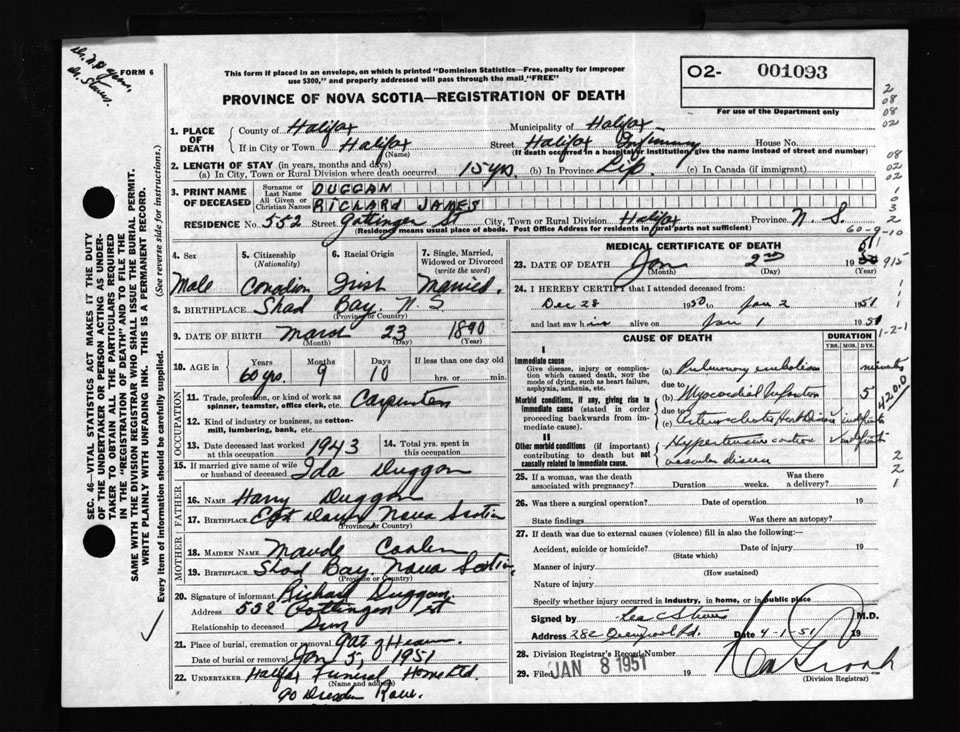 Dr.
Dr. Steeves.
FORM 6
This form if placed in an envelope, on which is printed "Dominion Statistics—Free, penalty for improper
use $300," and properly addressed will pass through the mail "FREE"
02- 001093
For use of the Department only
PROVINCE OF NOVA SCOTIA—REGISTRATION OF DEATH
1. PLACE OF DEATH
County of Halifax Municipality of Halifax
If in City or Town Halifax (Name) Street Halifax Infirmary House No.
(If death occurred in a hospital or institution give the name instead of street and number)
2. LENGTH OF STAY (in years, months and days)
(a) In City, Town or Rural Division where death occurred 15 yrs. (b) In Province Life. (c) In Canada (if immigrant)
3. PRINT NAME OF DECEASED
Surname or Last Name DUGGAN
All Given or Christian Names RICHARD JAMES
RESIDENCE No. 552 Street Gottingen St City, Town or Rural Division Halifax Province N. S.
(Residence means usual place of abode. Post Office Address for residents in rural parts not sufficient)
4. Sex
Male
5. Citizenship (Nationality)
Canadian
6. Racial Origin
Irish
7. Single, Married, Widowed or Divorced (write the word)
Married.
8. BIRTHPLACE Shad Bay. N. S
(Province or Country)
9. DATE OF BIRTH March 23 1890
(Month) (Day) (Year)
10. AGE Years 60 yrs. Months 9 Days 10 If less than one day old
hrs. or min.
OCCUPATION
11. Trade, profession, or kind of work as spinner, teamster, office clerk, etc. Carpenter
12. Kind of industry or business, as cotton-mill, lumbering, bank, etc.
13. Date deceased last worked at this occupation 1943
14. Total yrs. spent in this occupation
15. If married give name of wife or husband of deceased Ida Duggan
FATHER
16. NAME Harry Duggan
17. BIRTHPLACE Nova Scotia
(Province or Country)
MOTHER
18. MAIDEN NAME Maude
19. BIRTHPLACE Shad Bay. Nova Scotia,
(Province or Country)
20. Signature of informant Richard Duggan.
Address 552 Gottingen St
Relationship to deceased Son
21. Place of burial, cremation or removal Gate of Heaven.
Date of burial or removal Jan 5, 1951
22. UNDERTAKER Halifax Funeral Home Ltd.
(Name and address)
90 Dresden Row.
MEDICAL CERTIFICATE OF DEATH
23. DATE OF DEATH Jan 2nd 1951
(Month) (Day) (Year)
24. I HEREBY CERTIFY that I attended deceased from:
Dec 28 1950 to Jan 2 1951
and last saw him alive on Jan 1 1951
CAUSE OF DEATH
DURATION
YRS. MOS. DYS.
I
Immediate cause
Give disease, injury or complication which caused death, not the mode of dying, such as heart failure, asphyxia, asthenia, etc.
(a) Pulmonary embolism minutes
due to
Morbid conditions, if any, giving rise to immediate cause (stated in order proceeding backwards from immediate cause).
(b) Myocardial Infarction 5
due to
(c) Arteriosclerotic Heart Disease indefinite
II
Other morbid conditions (if important) contributing to death but not causally related to immediate cause.
Hypertensive cardio vascular disease indefinite
25. If a woman, was the death associated with pregnancy? Duration weeks. Was there a delivery?
26. Was there a surgical operation? Date of operation 19
State findings Was there an autopsy?
27. If death was due to external causes (violence) fill in also the following:—
Accident, suicide or homicide? Date of injury 19
(State which)
Manner of injury
(How sustained)
Nature of injury
Specify whether injury occurred in industry, in home, or in public place
Signed by M.D.
Address 282 Date 4-1-51 19
28. Division Registrar's Record Number
29. Filed JAN 8 1951 19
(Division Registrar)
SEC. 46—VITAL STATISTICS ACT MAKES IT THE DUTY
OF THE UNDERTAKER OR PERSON ACTING AS UNDER-
TAKER TO OBTAIN ALL THE PARTICULARS REQUIRED
IN THE "REGISTRATION OF DEATH" AND TO FILE THE
SAME WITH THE DIVISION REGISTRAR WHO SHALL ISSUE THE BURIAL PERMIT.
WRITE PLAINLY WITH UNFADING INK. THIS IS A PERMANENT RECORD.
Every item of information should be carefully supplied. (See reverse side for instructions.)
2
08
08
02
08
02
02
1
0
3
2
60-9-10
915
1
1
1
1-2-1
4200
2
2
1